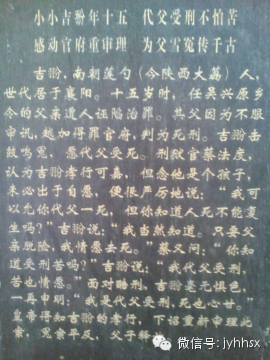 小小吉翂年十五 代父受刑不怕苦
感动官府重审理 为父雪冤传千古
吉翂，南朝莲勺（今陕西大荔）人，
世代居于襄阳。十五岁时，任吴兴原乡
令的父亲遭人诬陷治罪。其父因为不服
审讯，越加得罪官府，判为死刑。吉翂击
鼓鸣冤，愿代父受死。刑狱官蔡法度，
认为吉翂孝行可嘉，但念他是个孩子，
未必出于自愿，便很严厉地说：“我可
以允你代父一死，但你知道人死不能复
生吗？”吉翂说：“我当然知道。只要父
亲脱险，我情愿去死。”蔡又问：“你知
道受刑苦吗？”吉翂说：“我代父受刑，
苦也情愿。”面对酷刑，吉翂毫无惧色，
一再申明：“我是代父受刑，死也心甘。”
皇帝得知吉翂的孝行，下诏重新审理此
案，冤案平反，父子释
微信号：jyhhsx